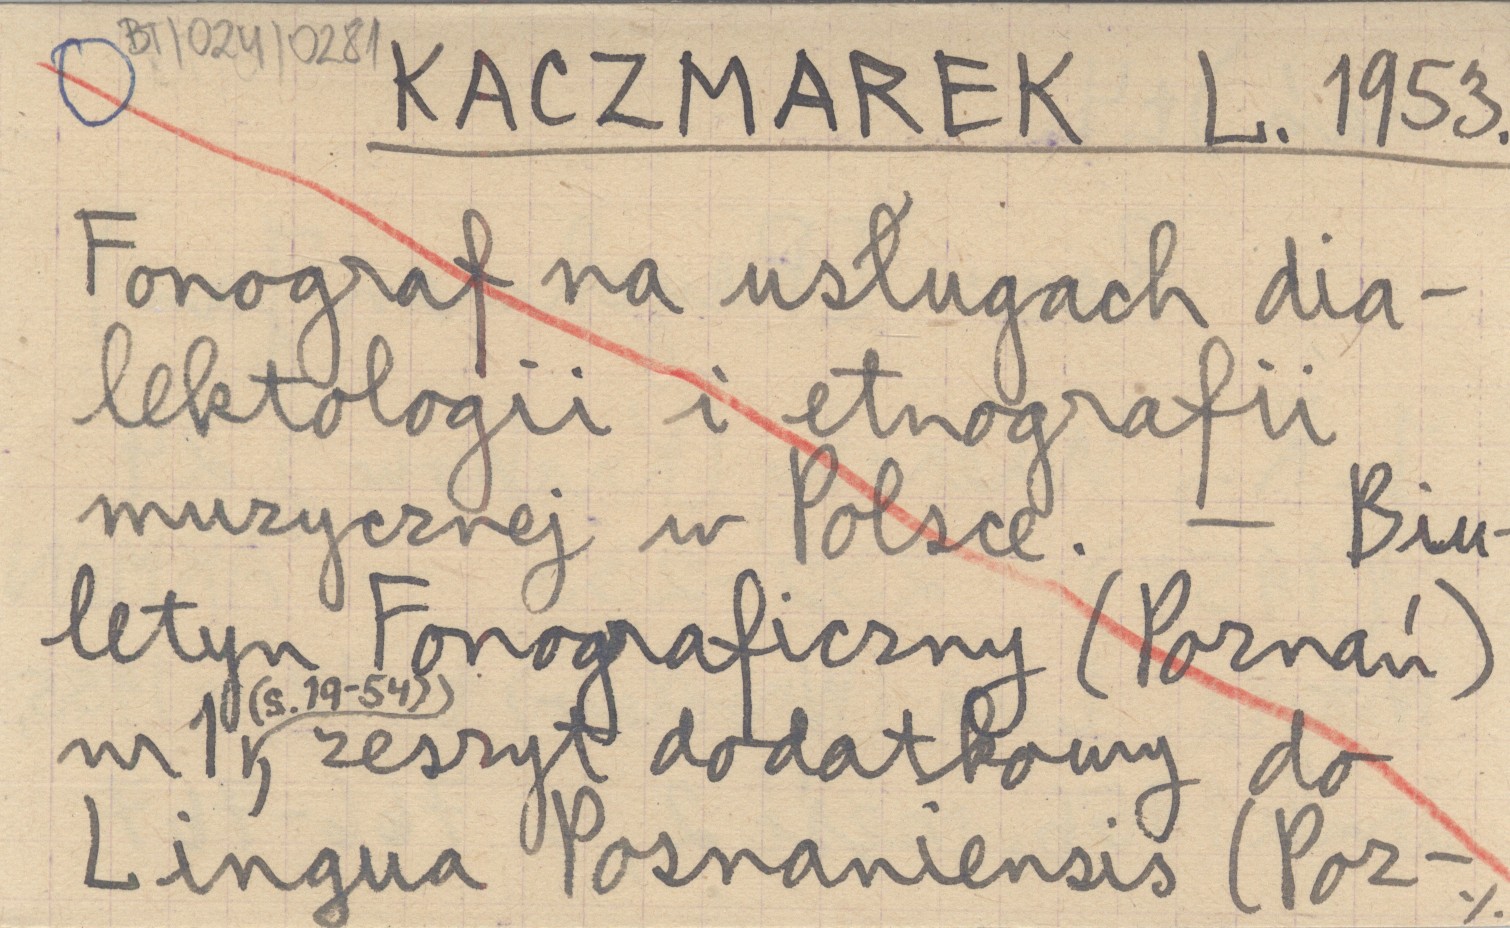 BT/024/0281
KACZMAREK L. 1953.
Fonograf na usługach dia-
lektologii i etnografii
muzycznej w Polsce. — Biu-
letyn Fonograficzny (Poznań)
(s. 19-54))
nr 1, zeszyt dodatkowy do
Lingua Posnaniensis (Poz-
./.